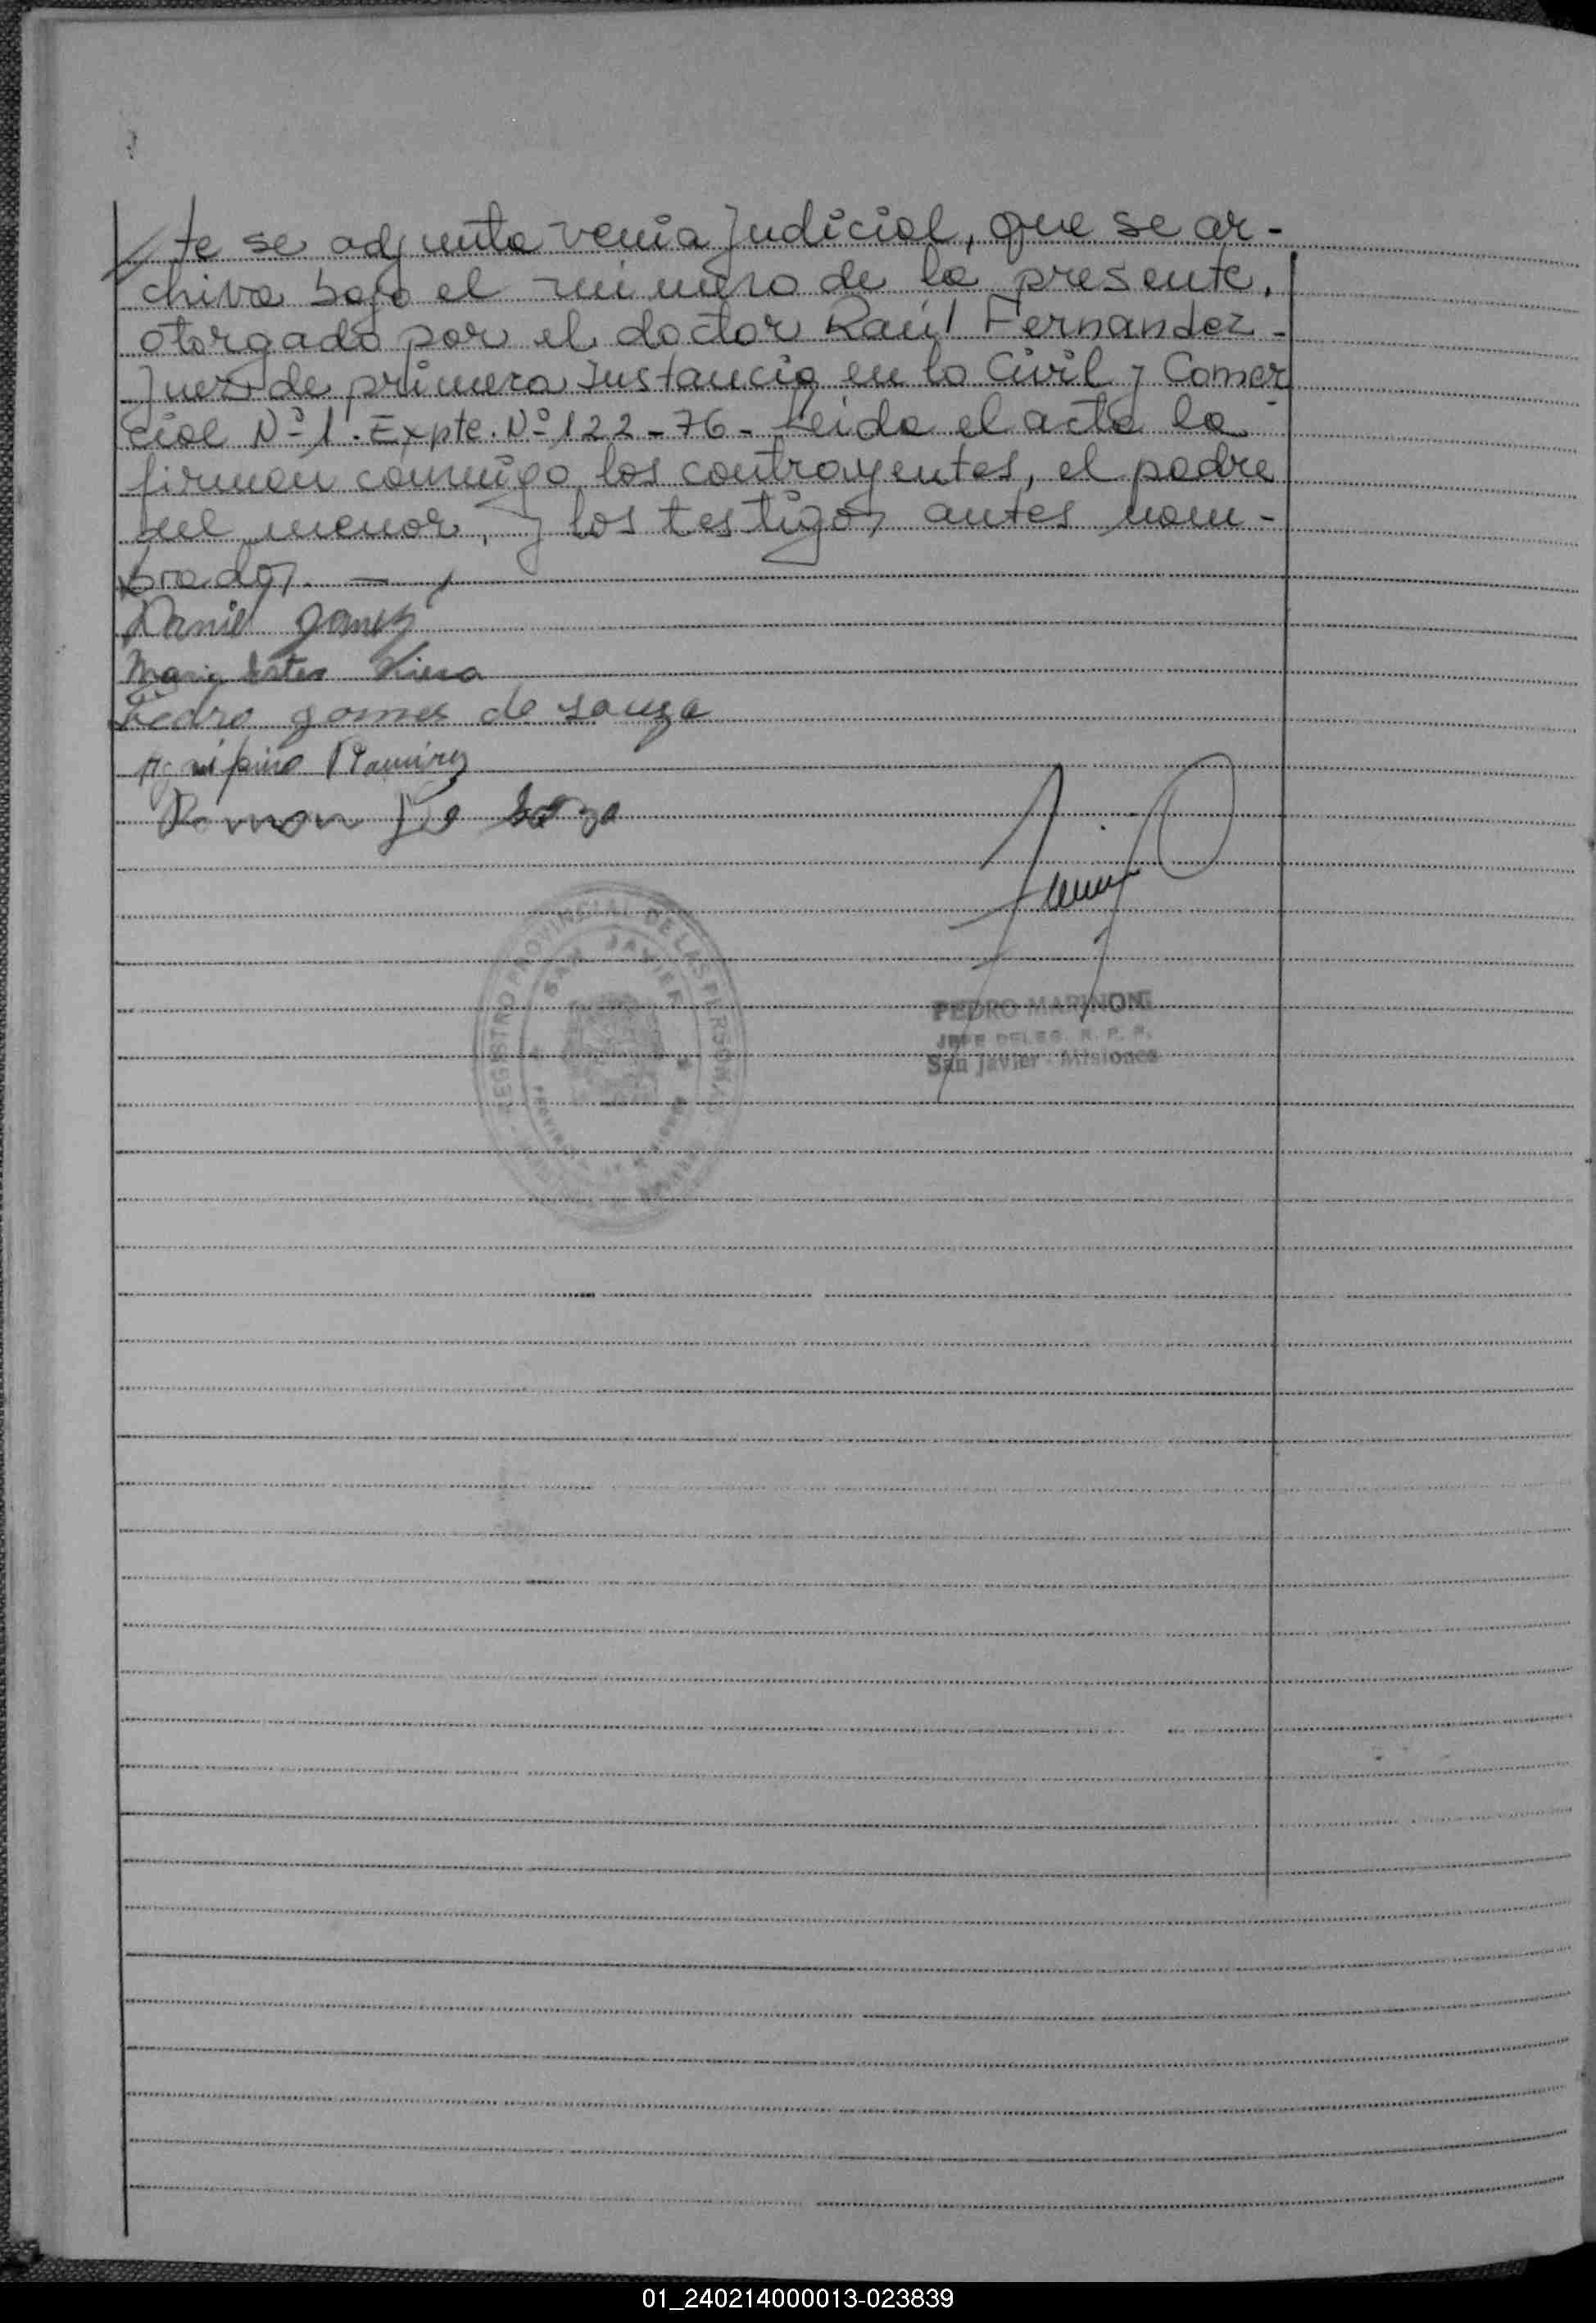 te se adjunta venia Judicial, que se ar-
chiva bajo el número de la presente,
otorgado por el doctor Raúl Fernandez-
Juez de primera Instancia en lo Civil y Comer
cial Nº 1. Expte. Nº 122-76- Leida el acta la
firman conmigo los contrayentes, el padre
del menor, y los testigos antes nom-
brados. —
Daniel gomez
Maria Ester
Pedro gomes de souza
Ramirez
Ramon
REGISTRO PROVINCIAL DE LAS PERSONAS
SAN JAVIER
PEDRO MARINONI
JEFE DELEG. R. P. P.
San Javier - Misiones
01_240214000013-023839